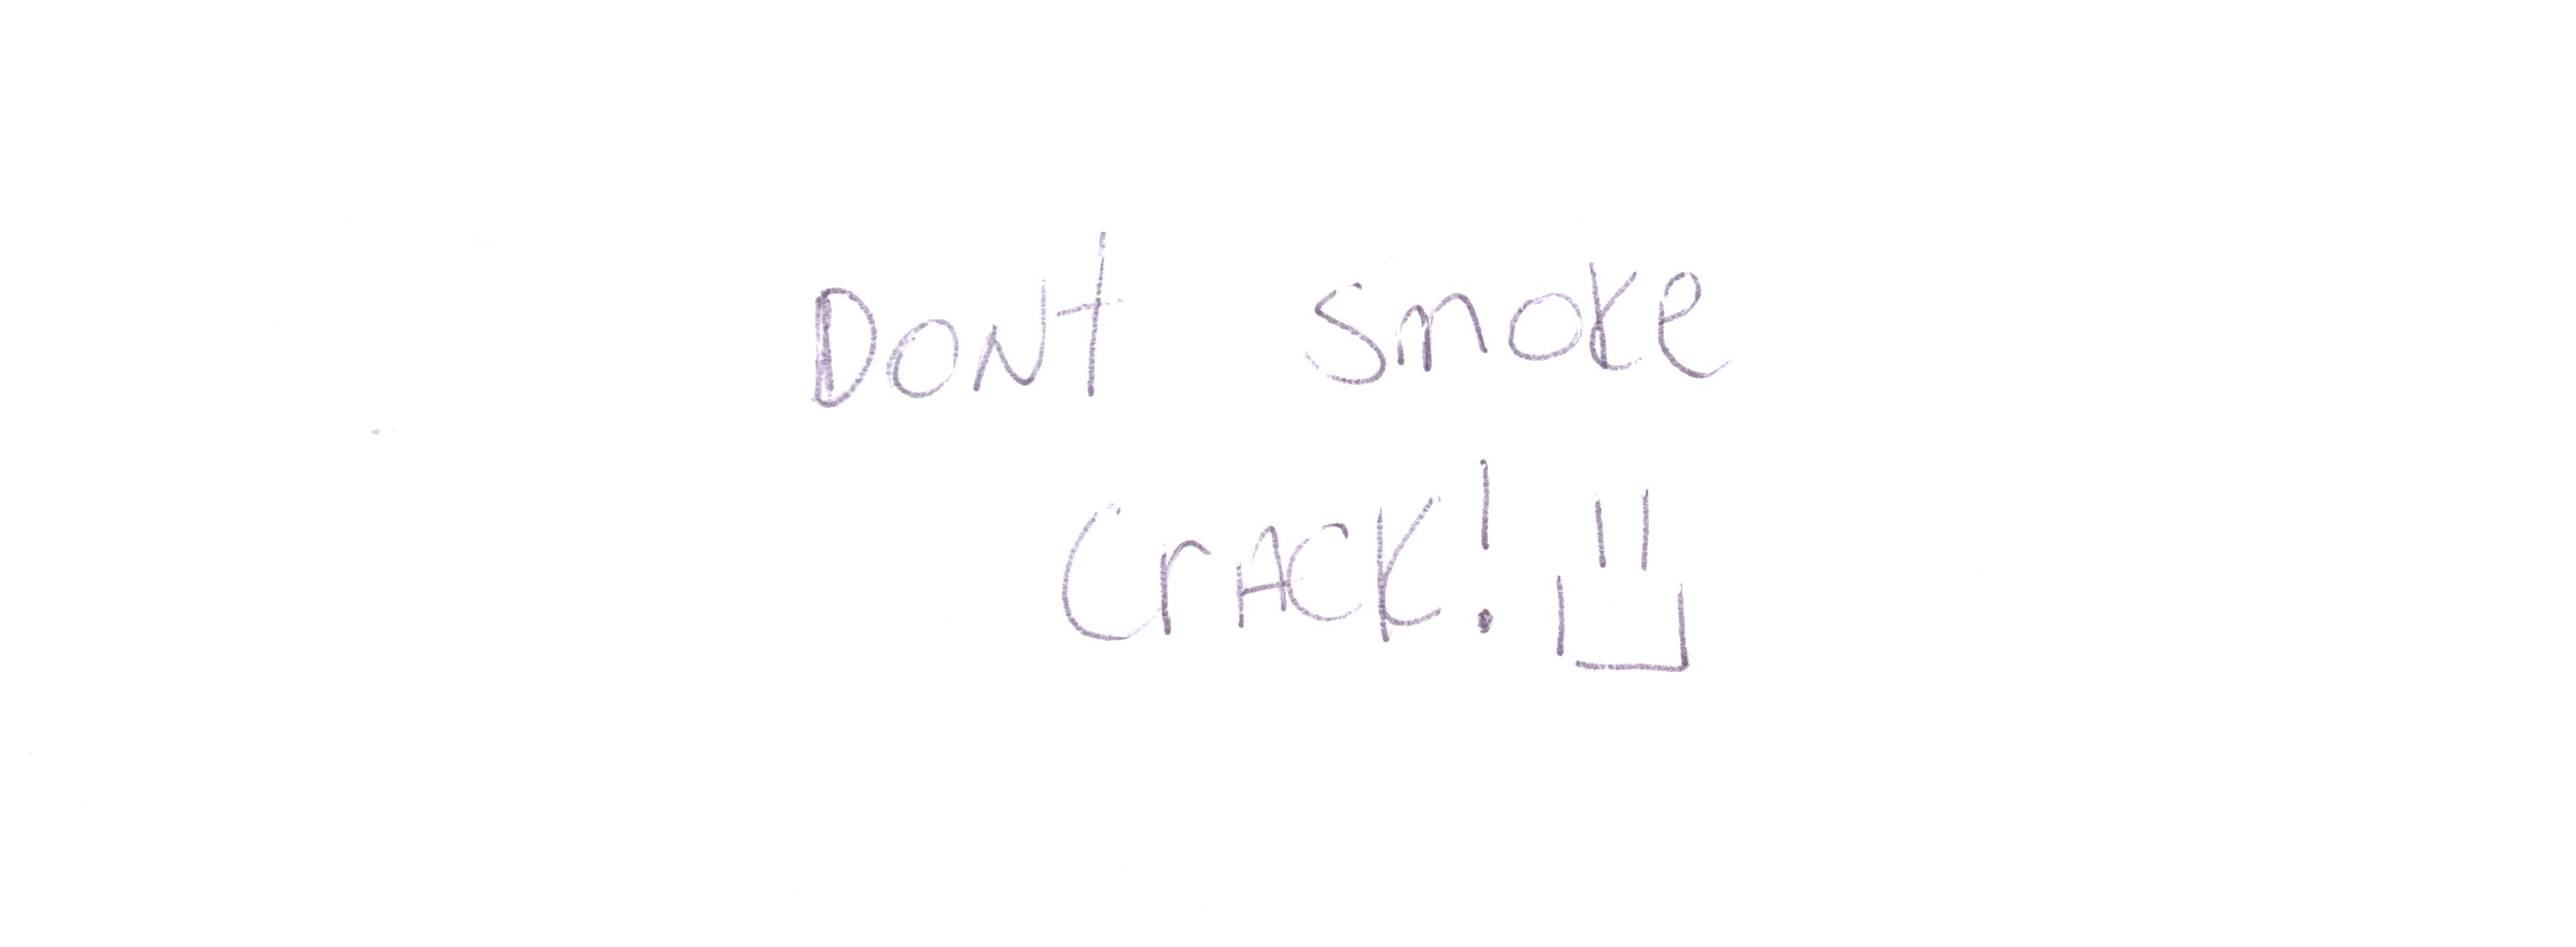 DONt smoke
CrACK!